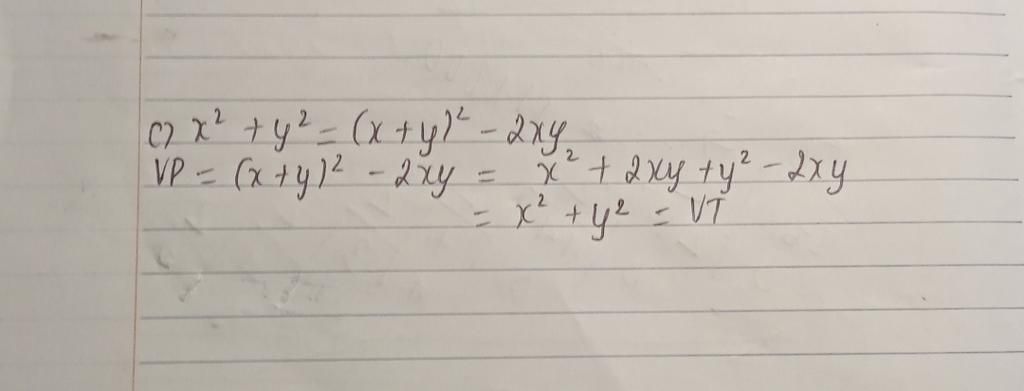 c) x² + y² = (x + y)² - 2xy
VP = (x + y)² - 2xy = x² + 2xy + y² - 2xy
= x² + y² = VT